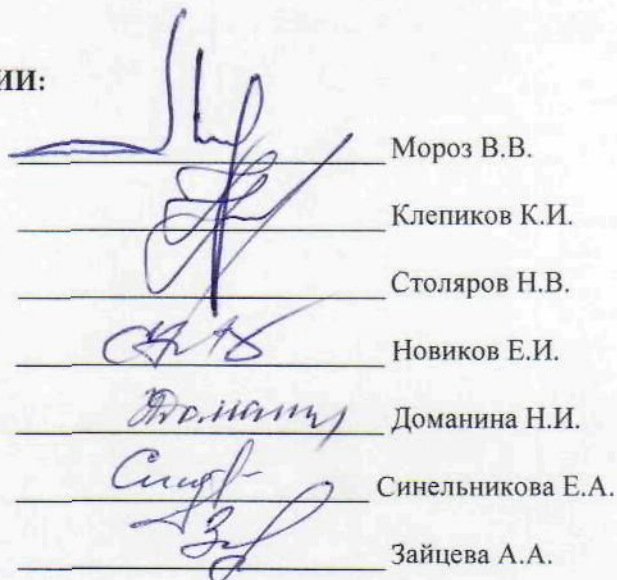 ИИ:
Мороз В.В.
Клепиков К.И.
Столяров Н.В.
Новиков Е.И.
Доманина Н.И.
Синельникова Е.А.
Зайцева А.А.